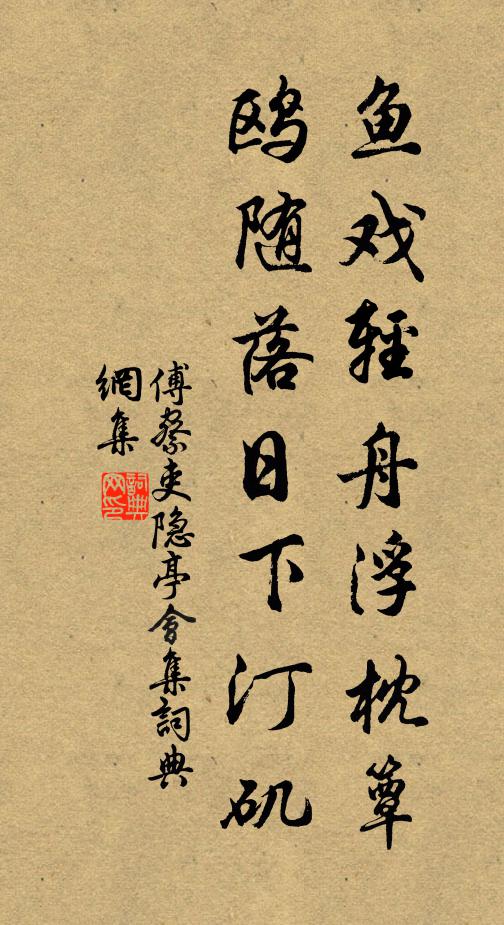 鱼戏轻舟浮枕簟
鸥随落日下汀矶
傅察吏隐亭会集詞典
網集
詞典网印